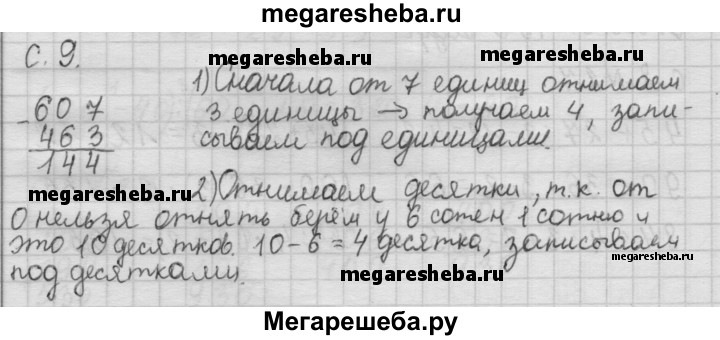 megaresheba.ru
с. 9.
megaresheba.ru
megaresheba.ru
1) Сначала от 7 единиц отнимаем
3 единицы → получаем 4, запи-
сываем под единицами.
- 607
463
144
megaresheba.ru
2) Отнимаем десятки, т.к. от
0 нельзя отнять берём у 6 сотен 1 сотню и
это 10 десятков. 10 - 6 = 4 десятка, записываем
под десятками.
megaresheba.ru
megaresheba.ru
Мегарешеба.ру